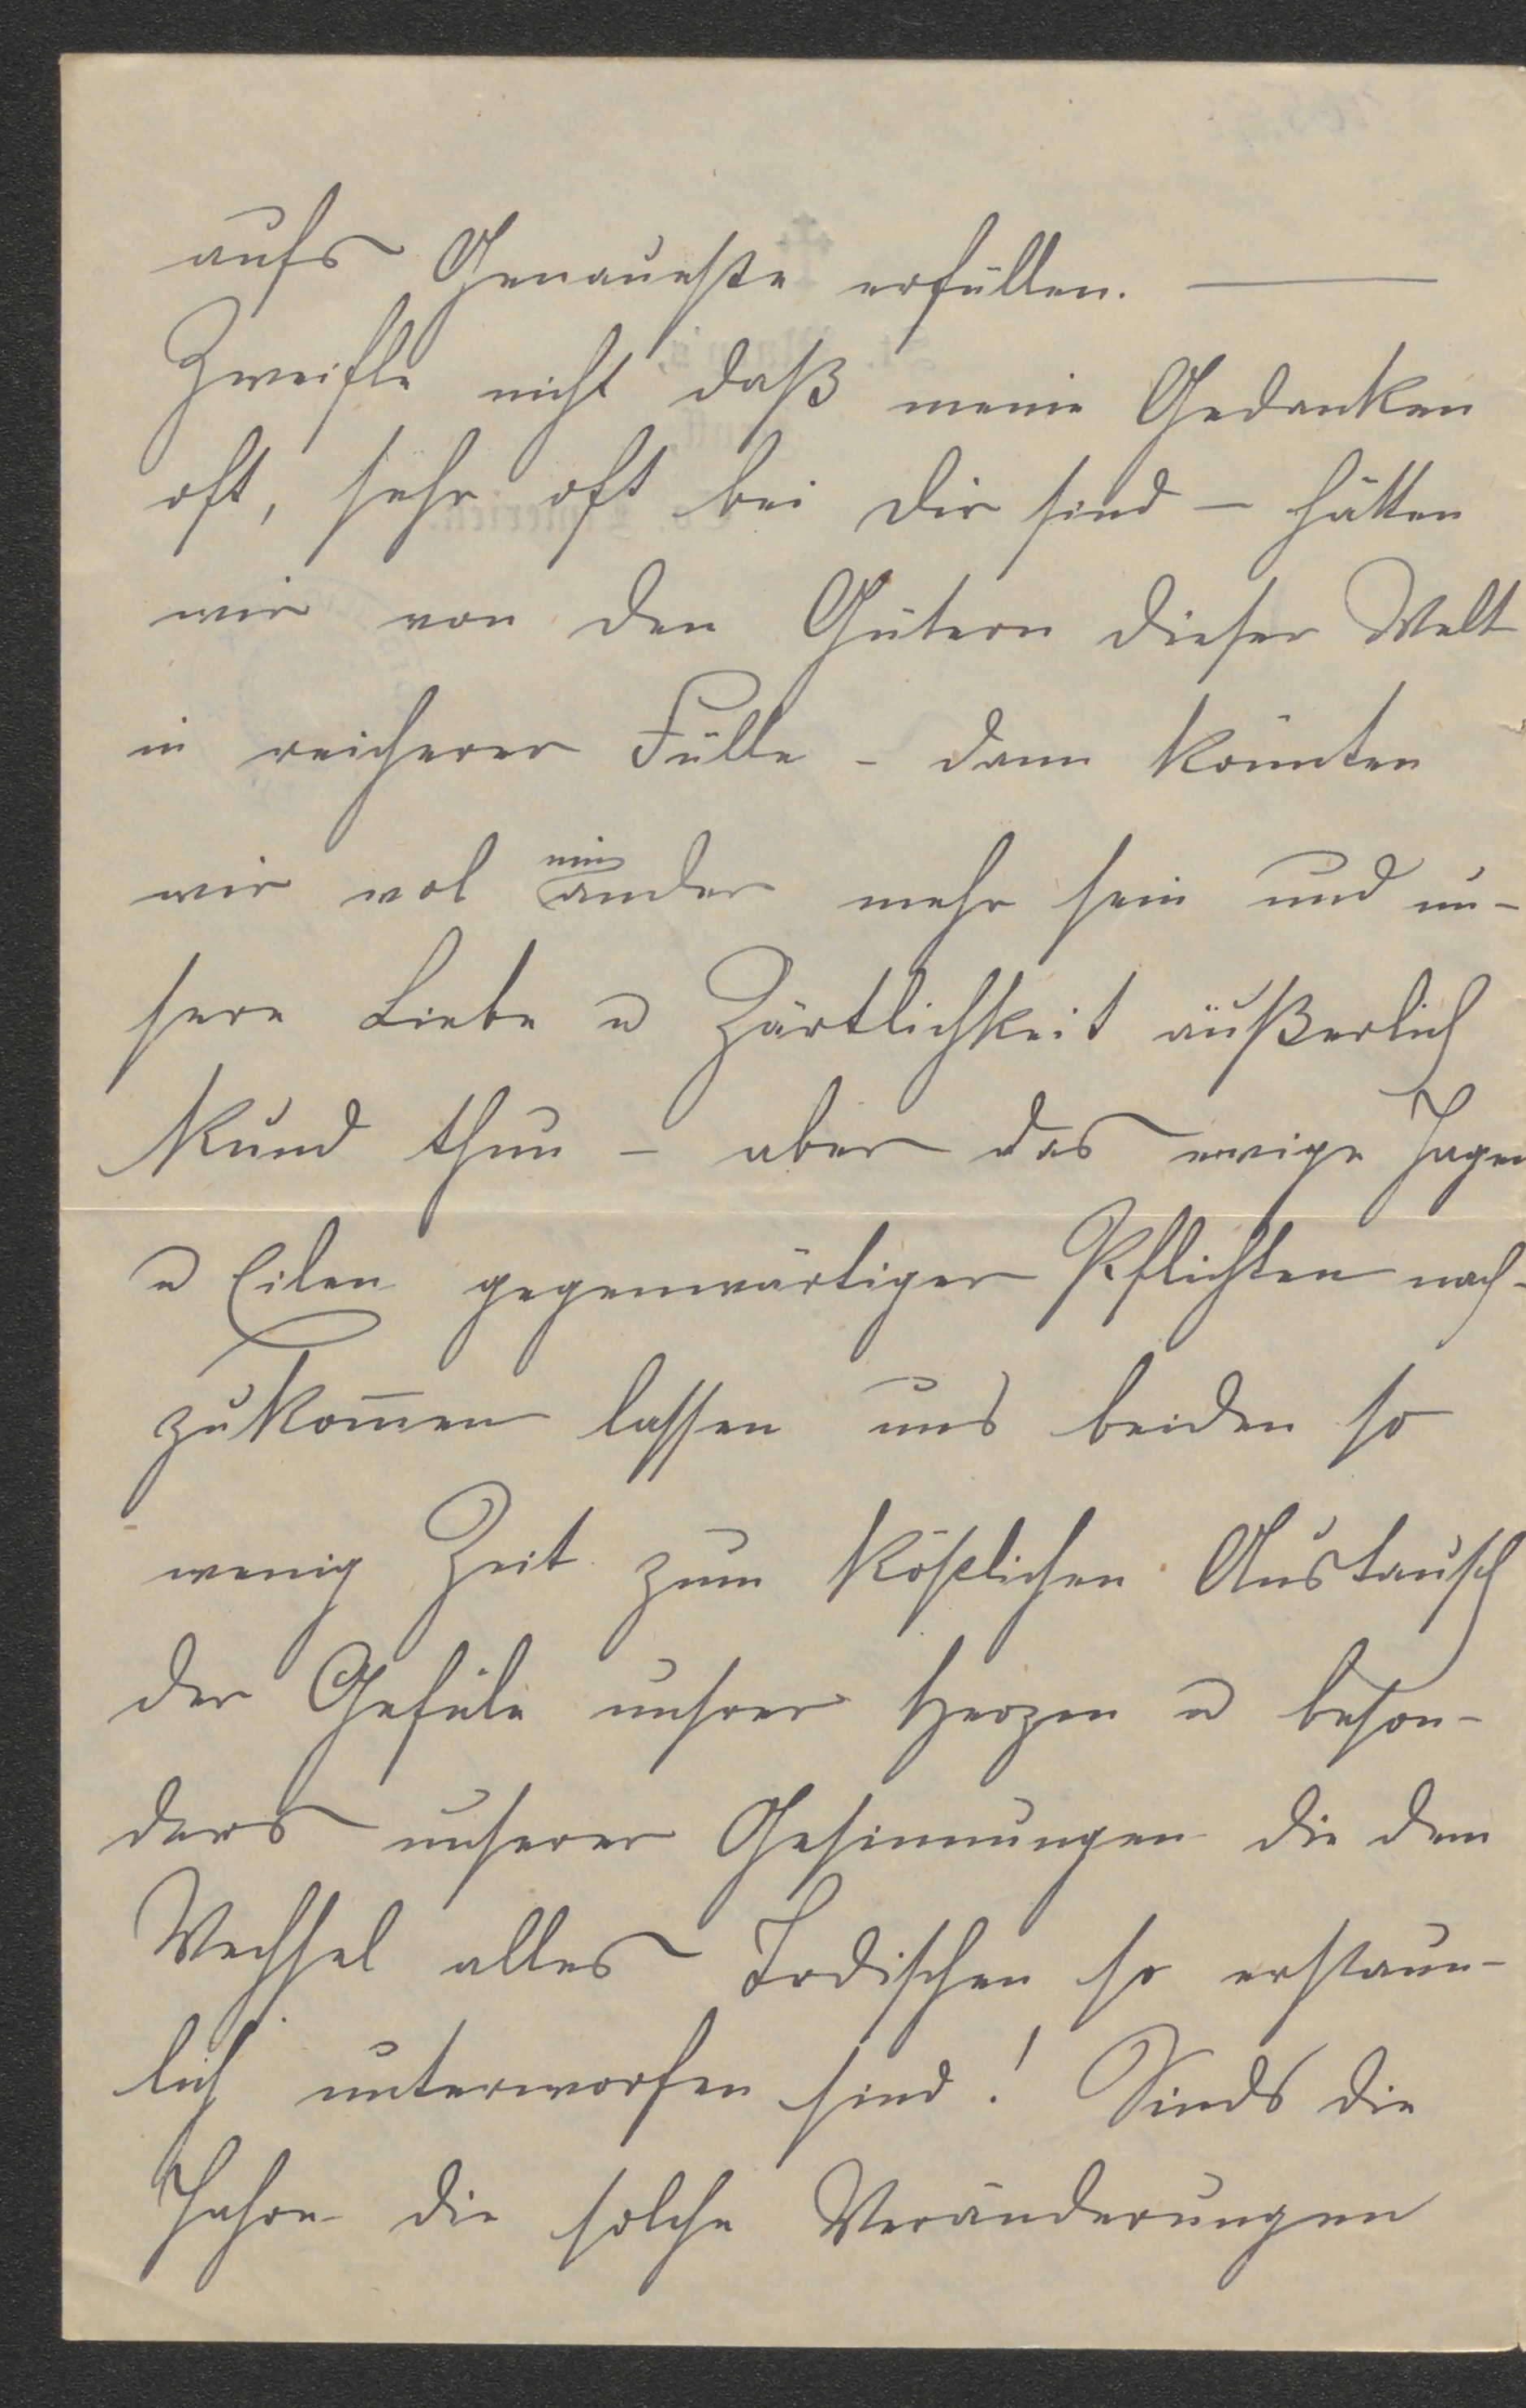 aufs Genaueste erfüllen. —
Zweifle nicht daß meine Gedanken
oft, sehr oft bei dir sind – hätten
wir von den Gütern dieser Welt
in reicherer Fülle – dann könnten
wir wol einander mehr sein und un-
sere Liebe u Zärtlichkeit äußerlich
kund thun – aber das ewige Jagen
u Eilen gegenwärtigen Pflichten nach-
zukom̄en lassen uns beiden so
wenig Zeit zum köstlichen Austausch
der Gefüle unsrer Herzen u beson-
ders unserer Gesinnungen die dem
Wechsel alles Irdischen so erstaun-
lich unterworfen sind! Sinds die
Jahre die solche Veränderungen